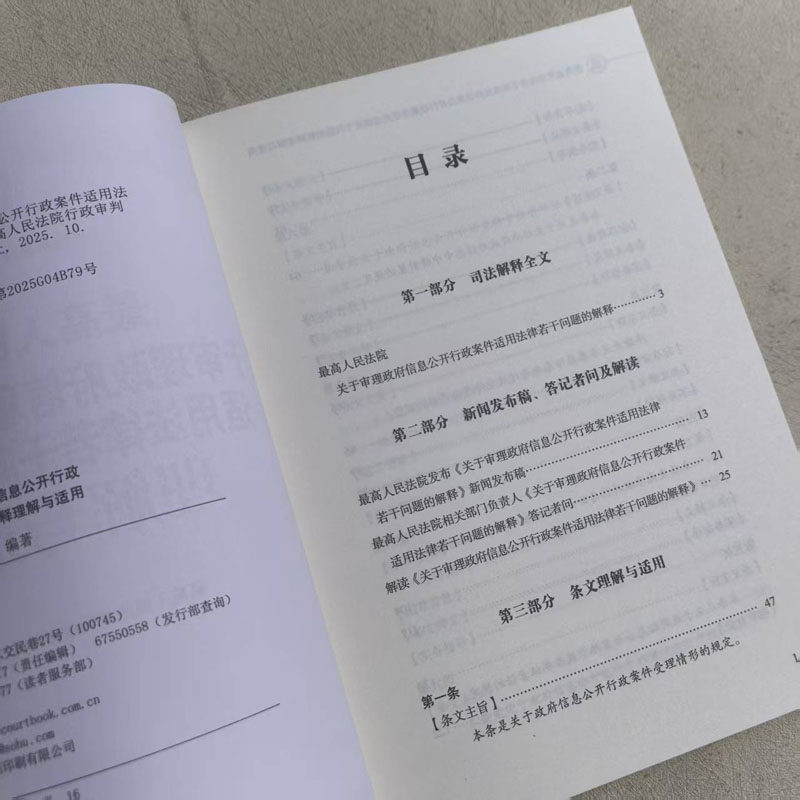 公开行政案件适用法
高人民法院行政审判
2025. 10.
第2025G04B79号
信息公开行政
释理解与适用
编著
交民巷27号 (100745)
(责任编辑) 67550558 (发行部查询)
77 (读者服务部)
courtbook.com.cn
@sohu.com
印刷有限公司
16
目 录
第一部分 司法解释全文
最高人民法院
关于审理政府信息公开行政案件适用法律若干问题的解释………… 3
第二部分 新闻发布稿、答记者问及解读
最高人民法院发布《关于审理政府信息公开行政案件适用法律
若干问题的解释》新闻发布稿………………………………… 13
最高人民法院相关部门负责人《关于审理政府信息公开行政案件
适用法律若干问题的解释》答记者问………………………… 21
解读《关于审理政府信息公开行政案件适用法律若干问题的解释》… 25
第三部分 条文理解与适用
第一条
【条文主旨】………………………………………………… 47
本条是关于政府信息公开行政案件受理情形的规定。